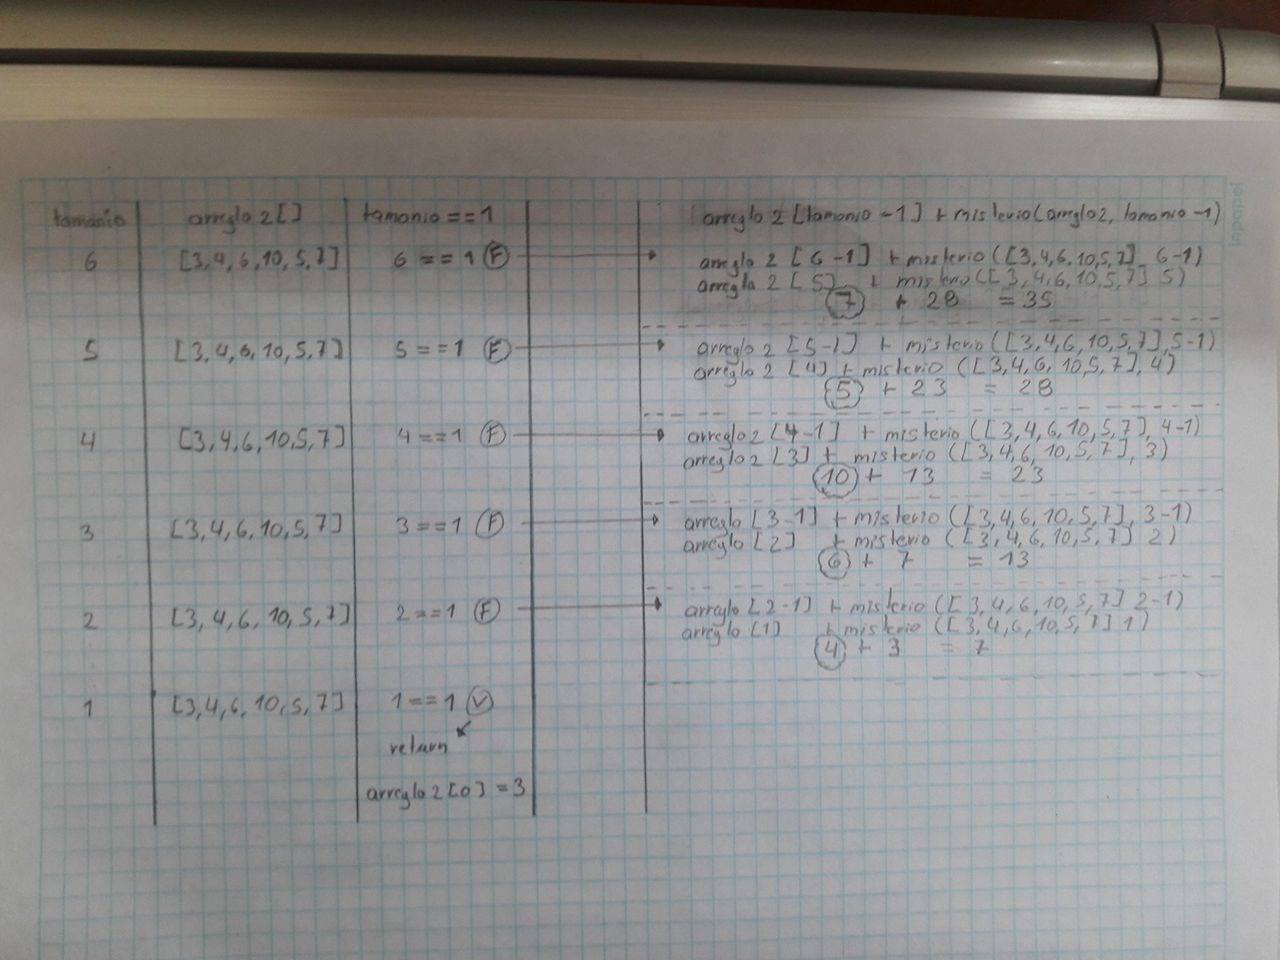 tamanio arreglo 2 [ ] tamanio == 1 arreglo 2 [tamanio - 1] + misterio(arreglo2, tamanio - 1)
6 [3,4,6,10,5,7] 6 == 1 F arreglo 2 [6-1] + misterio ([3,4,6,10,5,7] 6-1)
arreglo 2 [5] + misterio ([3,4,6,10,5,7] 5)
7 + 28 = 35
5 [3,4,6,10,5,7] 5 == 1 F arreglo 2 [5-1] + misterio ([3,4,6,10,5,7], 5-1)
arreglo 2 [4] + misterio ([3,4,6,10,5,7], 4)
5 + 23 = 28
4 [3,4,6,10,5,7] 4 == 1 F arreglo 2 [4-1] + misterio ([3,4,6,10,5,7], 4-1)
arreglo 2 [3] + misterio ([3,4,6,10,5,7], 3)
10 + 13 = 23
3 [3,4,6,10,5,7] 3 == 1 F arreglo [3-1] + misterio ([3,4,6,10,5,7], 3-1)
arreglo [2] + misterio ([3,4,6,10,5,7] 2)
6 + 7 = 13
2 [3,4,6,10,5,7] 2 == 1 F arreglo [2-1] + misterio ([3,4,6,10,5,7] 2-1)
arreglo [1] + misterio ([3,4,6,10,5,7] 1)
4 + 3 = 7
1 [3,4,6,10,5,7] 1 == 1 V
return
arreglo 2 [0] = 3